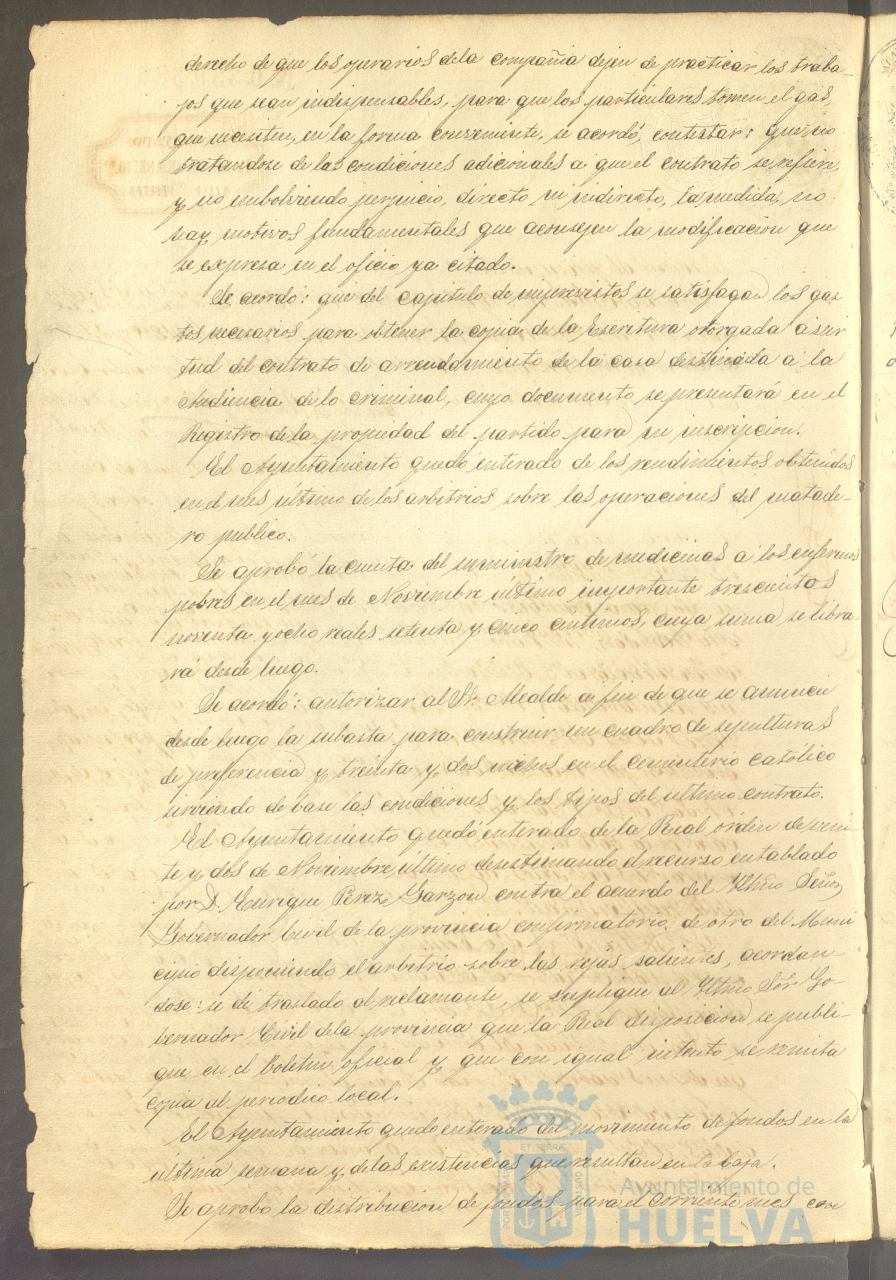 derecho de que los operarios de la compañia dejen de practicar los traba-
jos que sean indispensables, para que los particulares tomen el gas,
que necesiten, en la forma conveniente, se acordó, contestar: que, no
tratandose de las condiciones adicionales a que el contrato se refiere,
y no embolviendo perjuicio, directo ni indirecto, la medida, no
hay motivos fundamentales que aconsejen la modificacion que
se expresa en el oficio ya citado.
Se acordó: que del capitulo de imprevistos se satisfagan los gas
tos necesarios para obtener la copia de la Escritura otorgada á vir
tud del contrato de arrendamiento de la casa destinada á la
Audiencia de lo criminal, cuyo documento se presentará en el
Registro de la propiedad del partido para su inscripcion.
El Ayuntamiento quedó enterado de los rendimientos obtenidos
en el mes último de los arbitrios sobre las operaciones del matade-
ro publico.
Se aprobó la cuenta del suministro de medicinas á los enfermos
pobres en el mes de Noviembre último importante trescientos
noventa y ocho reales setenta y cinco céntimos, cuya suma se libra-
rá desde luego.
Se acordó: autorizar al Sr. Alcalde a fin de que se anuncie
desde luego la subasta para construir un cuadro de sepulturas
de preferencia y treinta y dos nichos en el cementerio católico
sirviendo de base las condiciones y los tipos del ultimo contrato.
El Ayuntamiento quedó enterado de la Real orden de vein-
te y dos de Noviembre último desestimando el recurso entablado
por D. Enrique Perez Garzon contra el acuerdo del Yltmo Señor
Gobernador Civil de la provincia confirmatorio de otro del Muni
cipio disponiendo el arbitrio sobre las rejas salientes, acordan-
dose: se dé traslado al reclamante, se suplique al Yltmo Sór Go-
bernador Civil de la provincia que la Real disposicion se publi-
que en el Boletin oficial y que con igual intento se remita
copia al periodico local.
El Ayuntamiento quedó enterado del movimiento de fondos en la
última semana y de las existencias que resultan en la Caja.
Se aprobó la distribucion de fondos para el corriente mes con
Ayuntamiento de
HUELVA